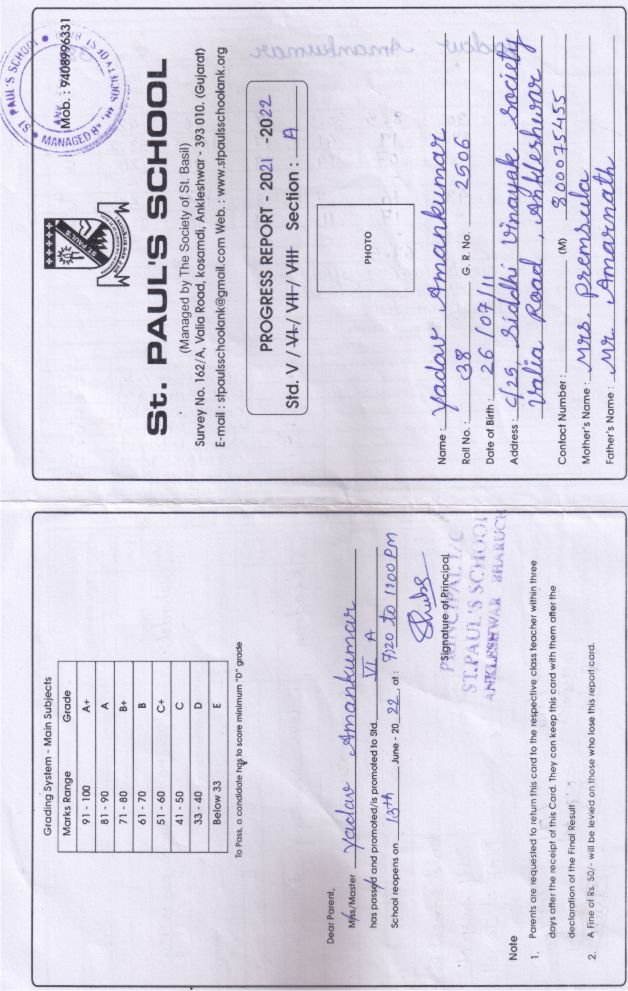 Grading System - Main Subjects
Marks Range Grade
91 - 100 A+
81 - 90 A
71 - 80 B+
61 - 70 B
51 - 60 C+
41 - 50 C
33 - 40 D
Below 33 E
To Pass, a candidate has to score minimum "D" grade
Dear Parent,
Miss/Master Yadav Amankumar
has passed and promoted/is promoted to Std. VI A
School reopens on 13th June - 2022, at : 7:20 to 1:00 PM
Signature of Principal
PRINCIPAL I/C
ST. PAUL'S SCHOOL
ANKLESHWAR BHARUCH
Note
1. Parents are requested to return this card to the respective class teacher within three
days after the receipt of this Card. They can keep this card with them after the
declaration of the Final Result
2. A Fine of Rs. 50/- will be levied on those who lose this report card.
ST PAUL'S SCHOOL
MANAGED BY
Mob. : 9408996331
ST. PAUL'S
St. PAUL'S SCHOOL
(Managed by The Society of St. Basil)
Survey No. 162/A, Valia Road, kosamdi, Ankleshwar - 393 010. (Gujarat)
E-mail : stpaulsschoolank@gmail.com Web. : www.stpaulsschoolank.org
PROGRESS REPORT - 2021 -2022
Std. V / VI / VII / VIII Section : A
PHOTO
Name : Yadav Amankumar
Roll No. : 38 G. R. No. 2506
Date of Birth : 26/07/11
Address : C/25 Siddhi Vinayak Society
Valia Road, Ankleshwar
Contact Number : (M) 800075455
Mother's Name : Mrs. Premsula
Father's Name : Mr. Amarnath